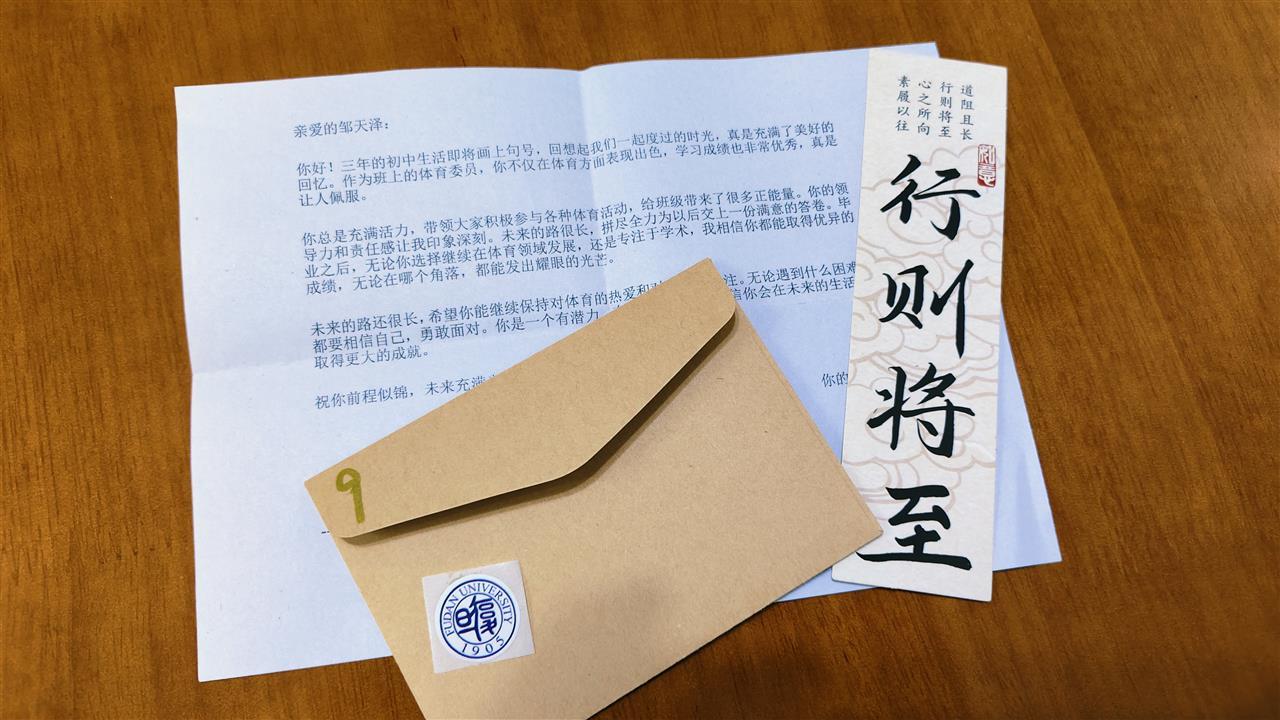 亲爱的邹天泽：
你好！三年的初中生活即将画上句号，回想起我们一起度过的时光，真是充满了美好的
回忆。作为班上的体育委员，你不仅在体育方面表现出色，学习成绩也非常优秀，真是
让人佩服。
你总是充满活力，带领大家积极参与各种体育活动，给班级带来了很多正能量。你的领
导力和责任感让我印象深刻。未来的路很长，拼尽全力为以后交上一份满意的答卷。毕
业之后，无论你选择继续在体育领域发展，还是专注于学术，我相信你都能取得优异的
成绩，无论在哪个角落，都能发出耀眼的光芒。
未来的路还很长，希望你能继续保持对体育的热爱和 注。无论遇到什么困难
都要相信自己，勇敢面对。你是一个有潜力 信你会在未来的生活
取得更大的成就。
祝你前程似锦，未来充满
你的
道阻且长
行则将至
心之所向
素履以往
行则将至
9
FUDAN UNIVERSITY
1905